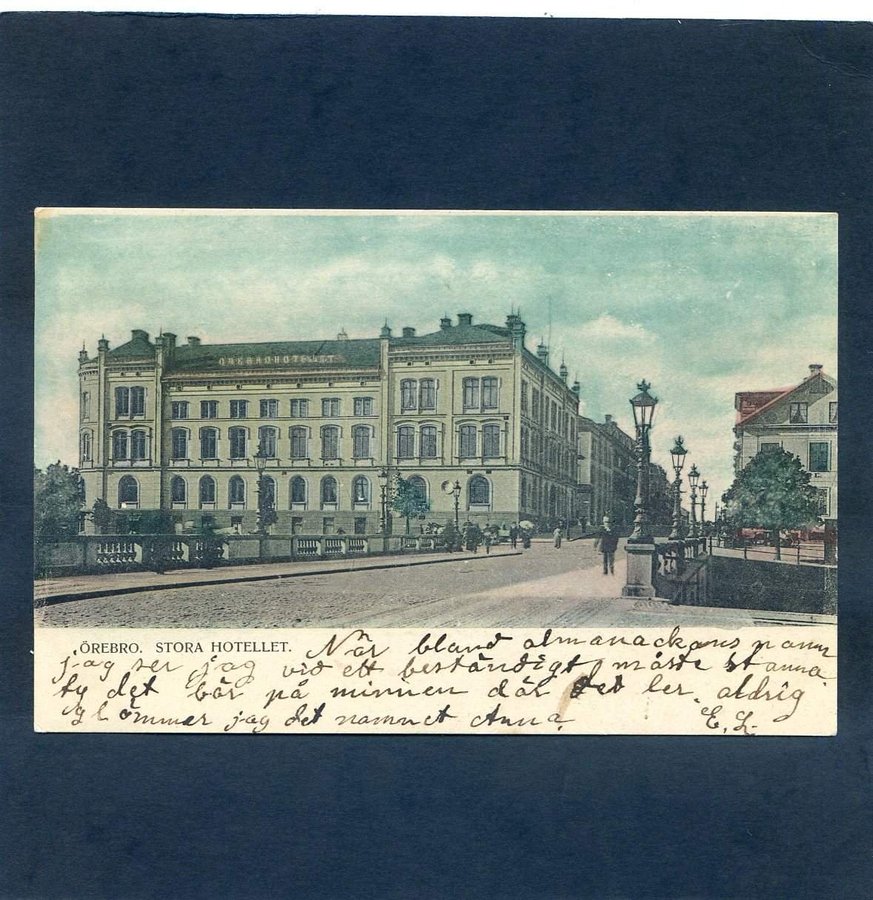 ÖREBROHOTELLET
ÖREBRO. STORA HOTELLET.
När bland almanackans namn
jag ser jag vid ett beständigt måste stanna
ty det bär på minnen där det ler, aldrig
glömmer jag det namnet Anna.
E. L.